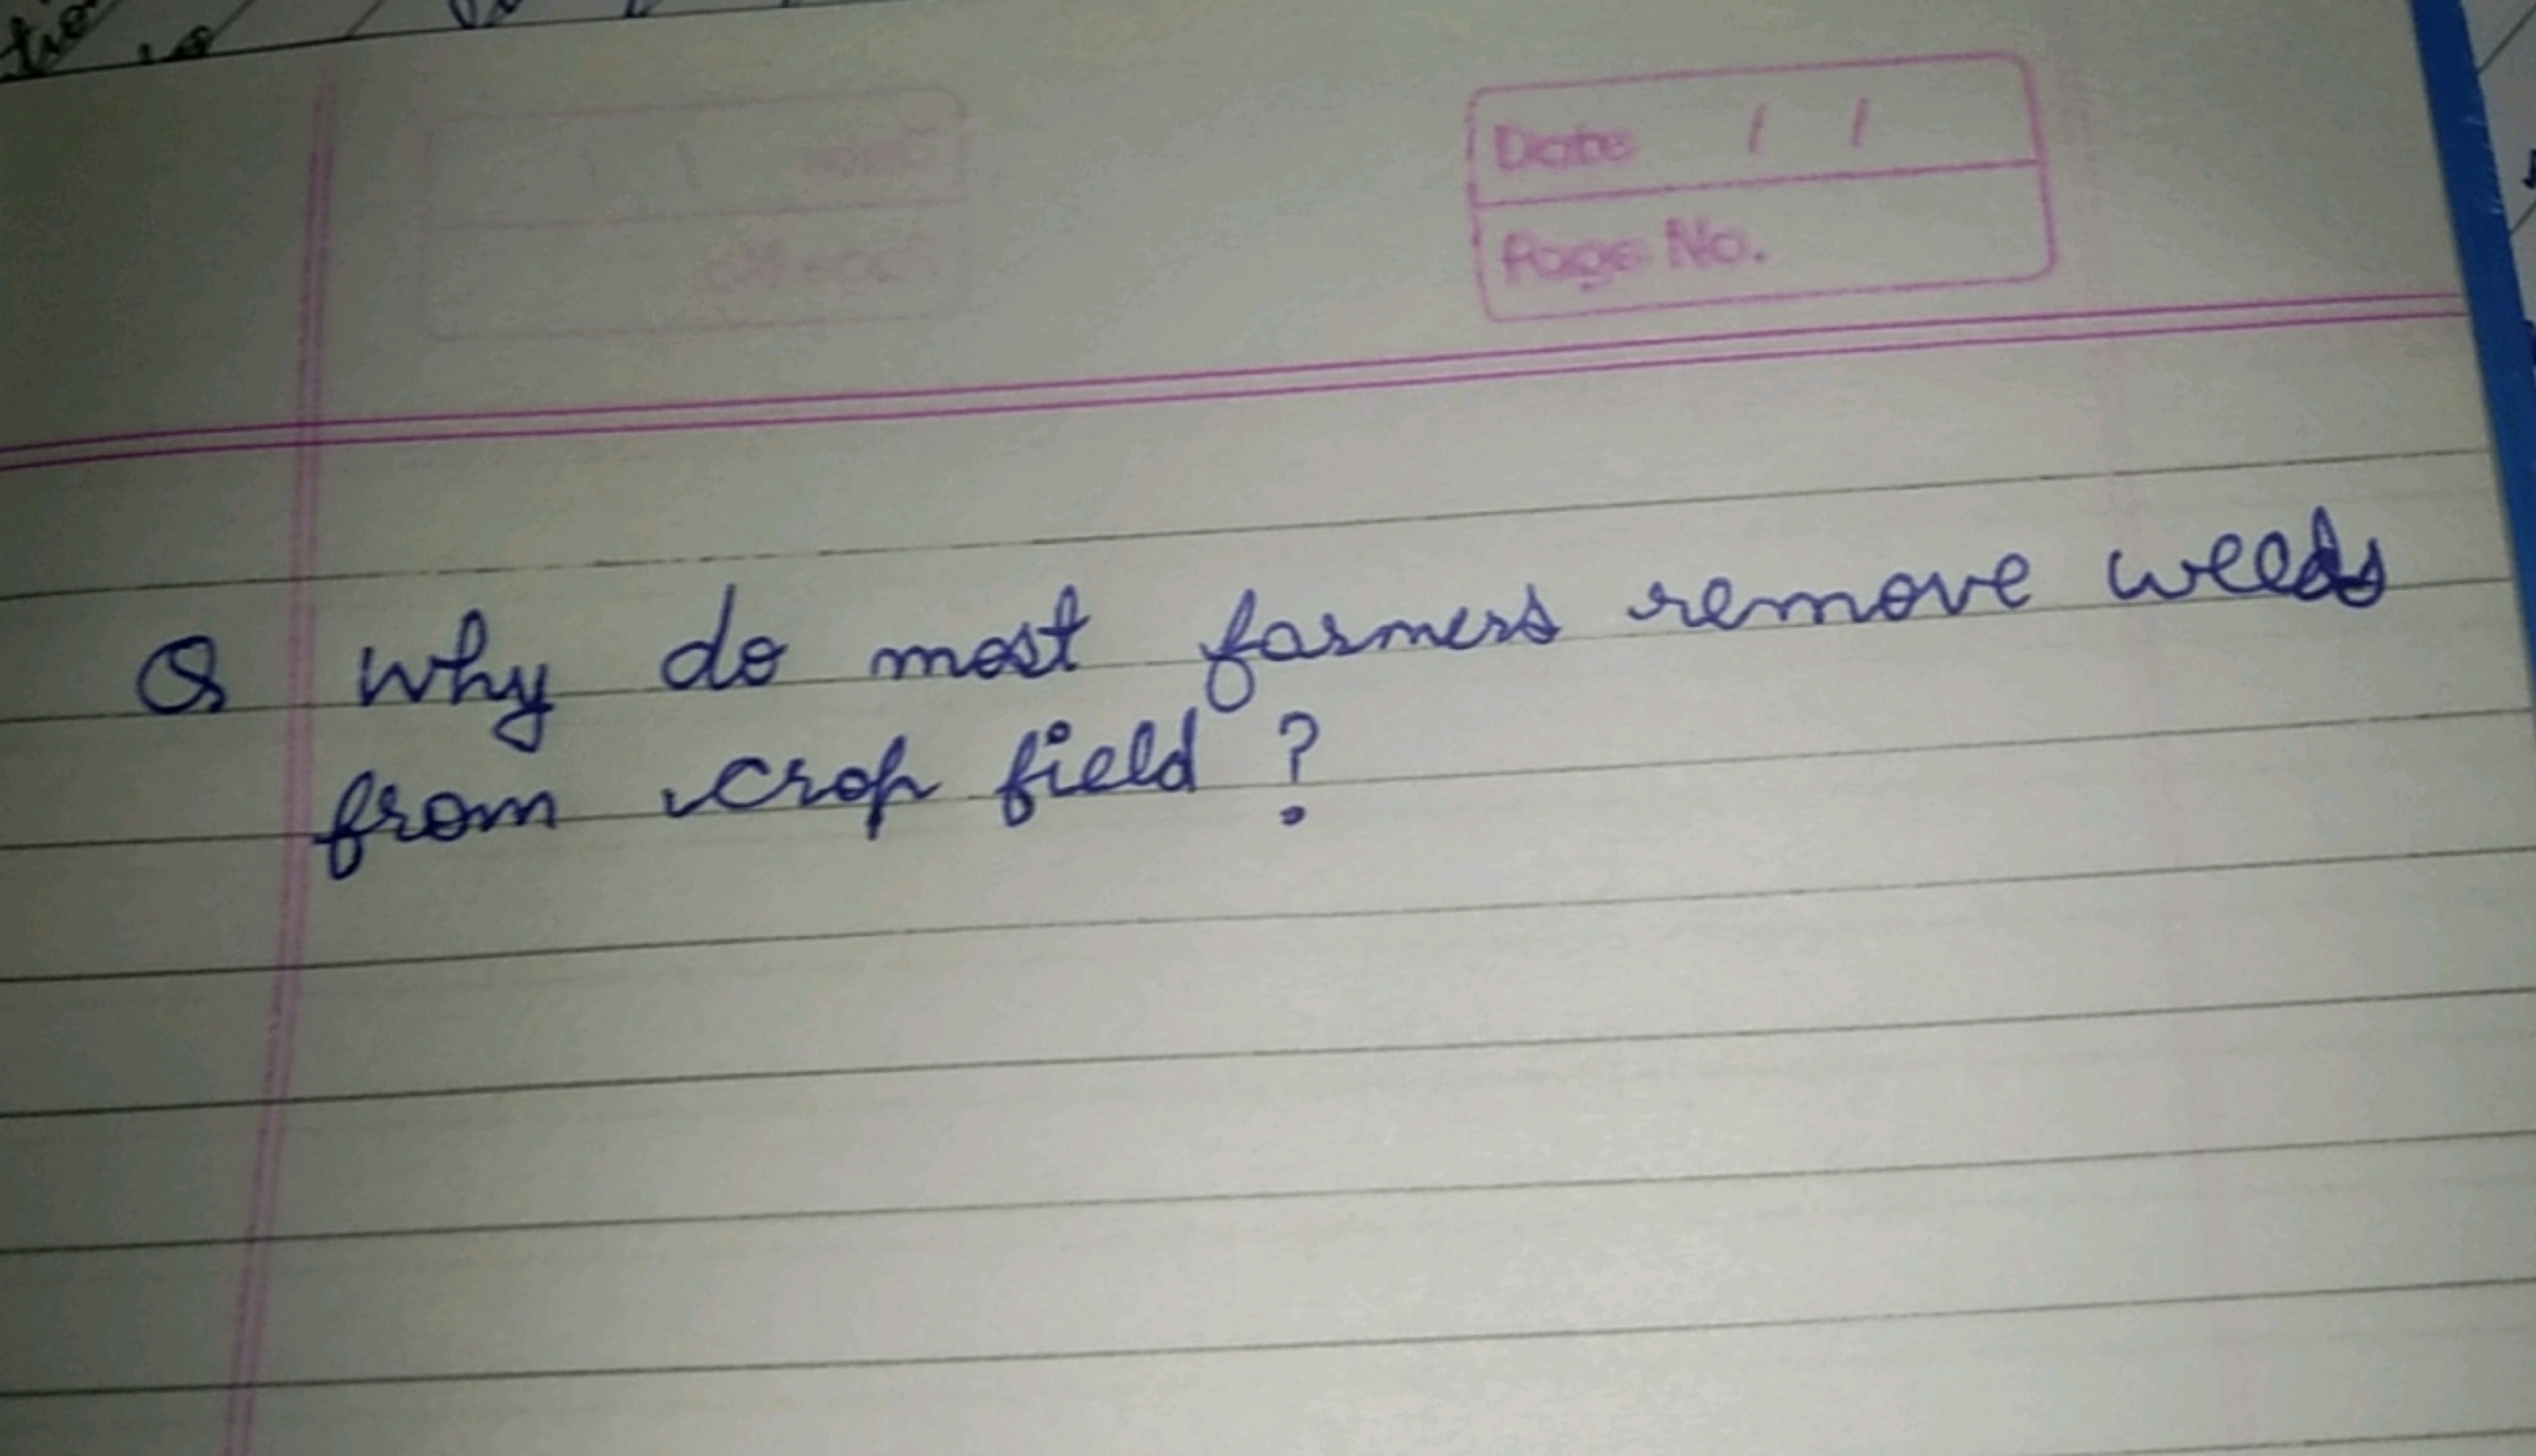 Date / /
Page No.
Q Why do most farmers remove weeds
from crop field ?